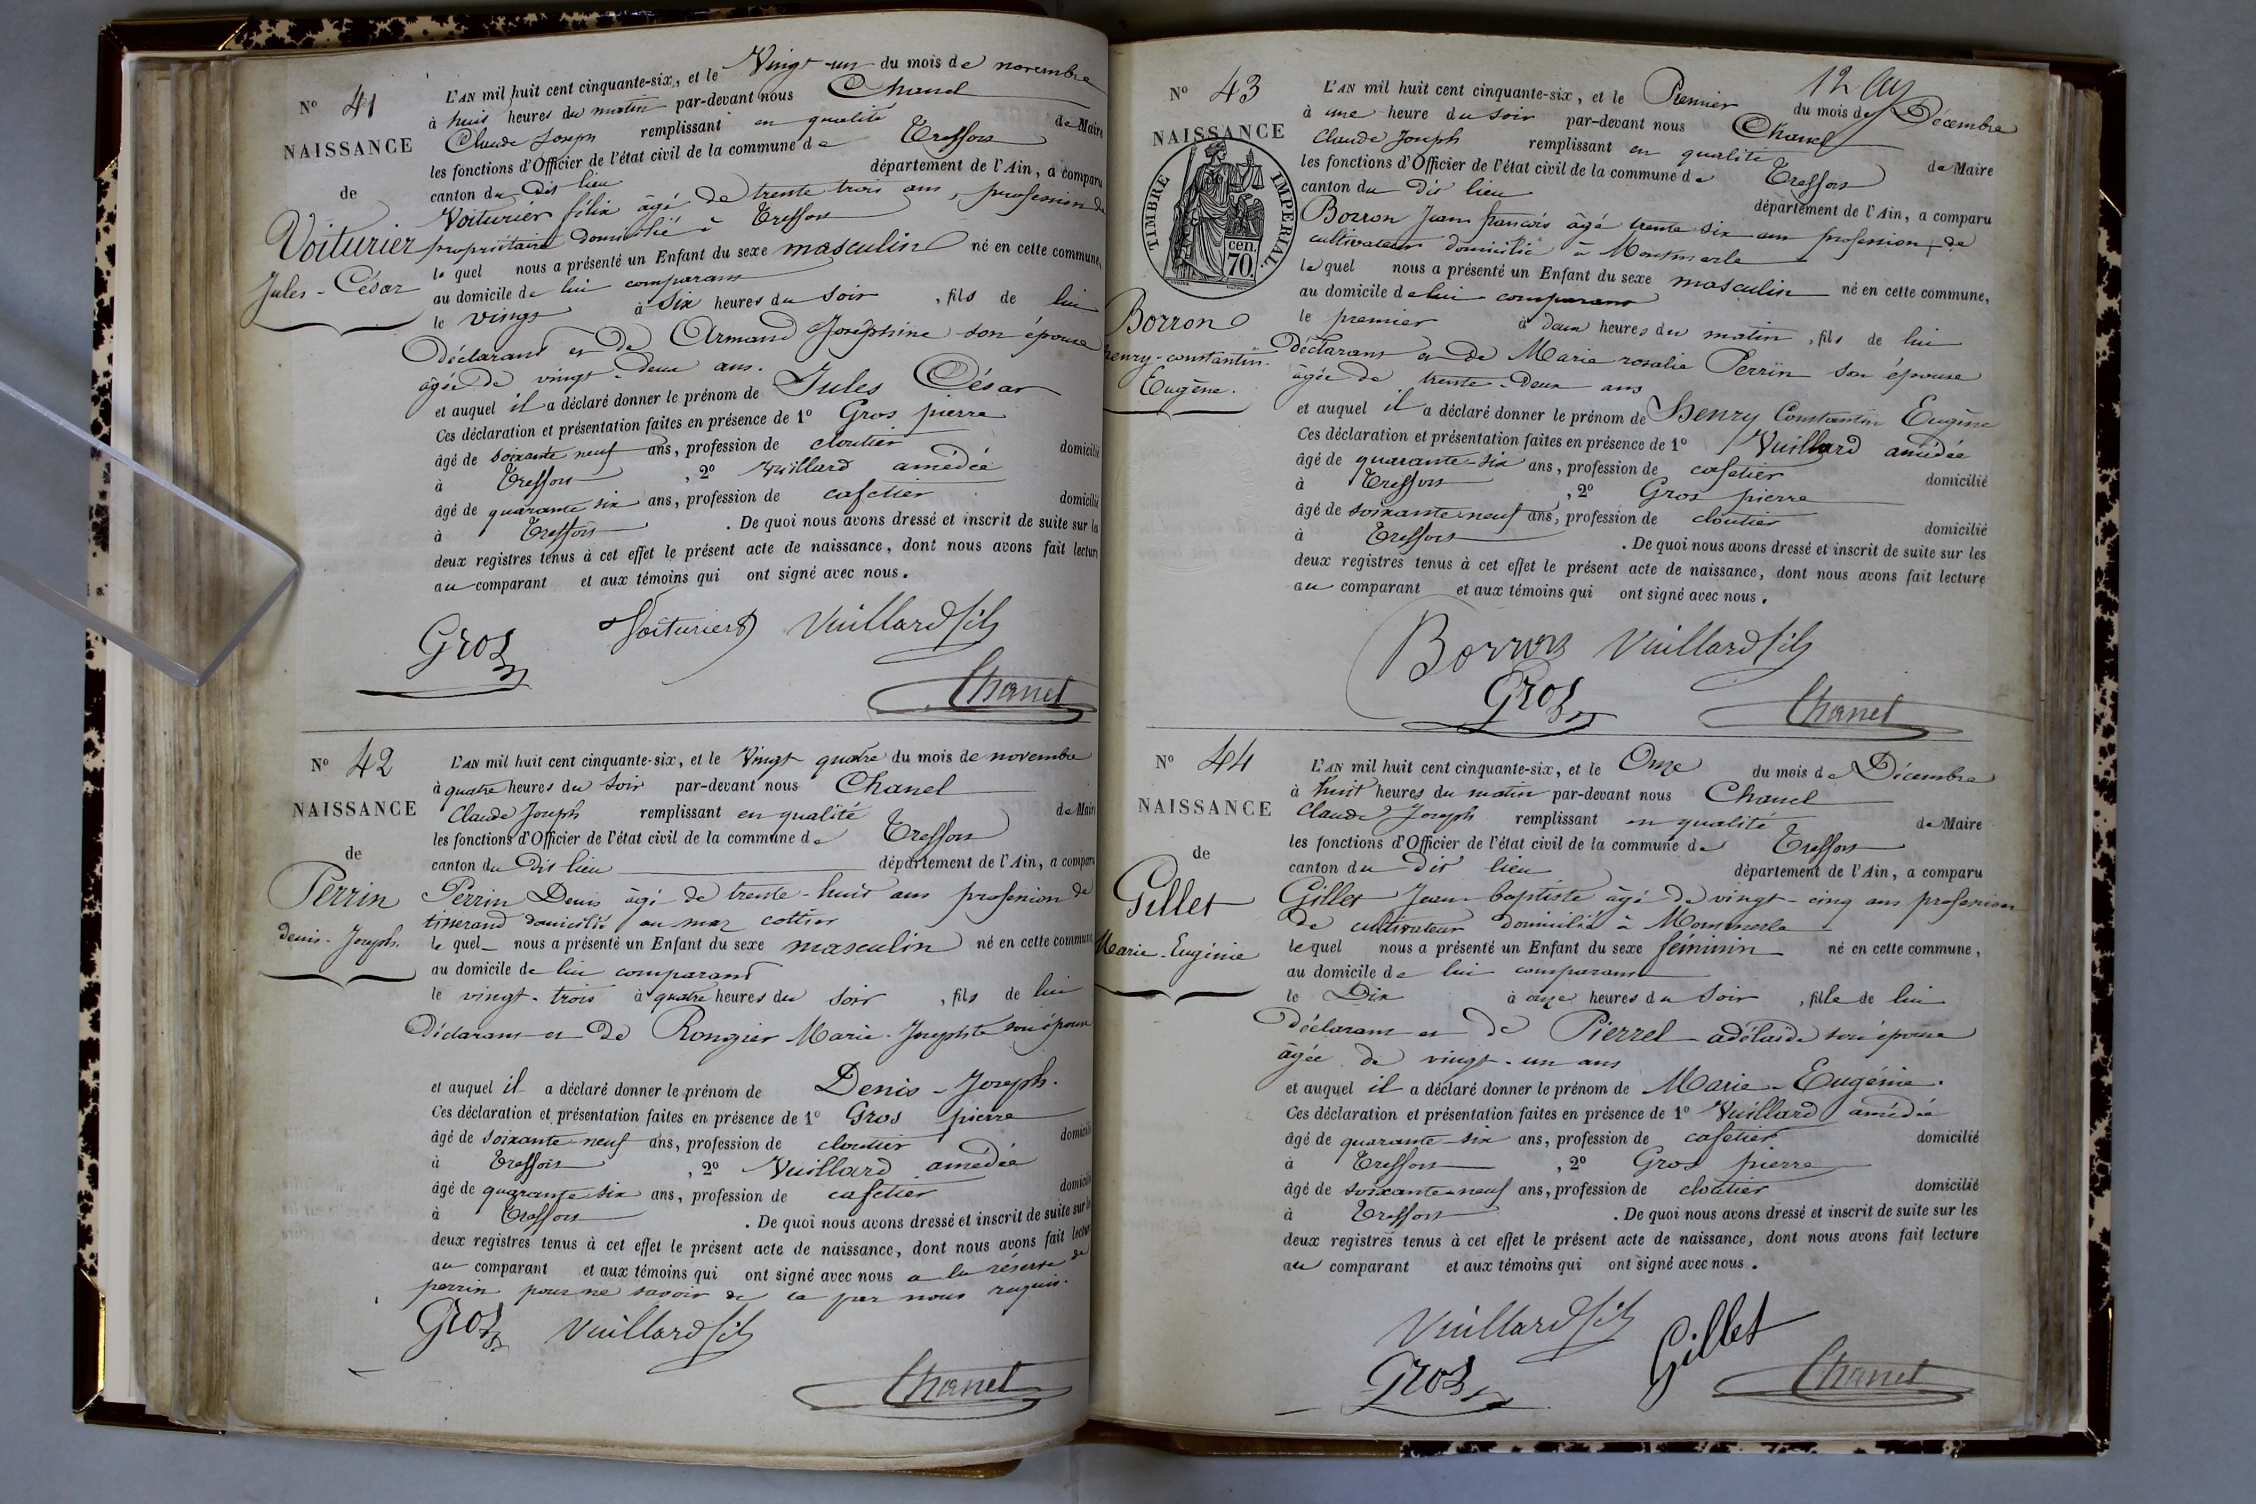 N.° 41
NAISSANCE
de
Voiturier
Jules-César
L'AN mil huit cent cinquante-six, et le Vingt-un du mois de novembre
à huit heures du matin par-devant nous Chanel
Claude Joseph remplissant en qualité de Maire
les fonctions d'Officier de l'état civil de la commune de Treffort
canton du dit lieu département de l'Ain, a comparu
Voiturier félix âgé de trente trois ans, profession de
propriétaire domicilié à Treffort
le quel nous a présenté un Enfant du sexe masculin né en cette commune,
au domicile de lui comparant
le vingt à six heures du soir, fils de lui
Déclarant et de Armand Joséphine son épouse
âgée de vingt-deux ans.
et auquel il a déclaré donner le prénom de Jules César
Ces déclaration et présentation faites en présence de 1° Gros pierre
âgé de soixante neuf ans, profession de cloutier domicilié
à Treffort, 2° Vuillard amédée
âgé de quarante six ans, profession de cafetier domicilié
à Treffort. De quoi nous avons dressé et inscrit de suite sur les
deux registres tenus à cet effet le présent acte de naissance, dont nous avons fait lecture
au comparant et aux témoins qui ont signé avec nous.
Gros Voiturier Vuillard fils
Chanel
N.° 42
NAISSANCE
de
Perrin
denis-Joseph.
L'AN mil huit cent cinquante-six, et le Vingt quatre du mois de novembre
à quatre heures du soir par-devant nous Chanel
Claude Joseph remplissant en qualité de Maire
les fonctions d'Officier de l'état civil de la commune de Treffort
canton du dit lieu département de l'Ain, a comparu
Perrin Denis âgé de trente-huit ans profession de
tisserand domicilié au maz cottier
le quel nous a présenté un Enfant du sexe masculin né en cette commune
au domicile de lui comparant
le vingt-trois à quatre heures du soir, fils de lui
Déclarant et de Marie-Josephte son épouse
et auquel il a déclaré donner le prénom de Denis-Joseph.
Ces déclaration et présentation faites en présence de 1° Gros pierre
âgé de soixante-neuf ans, profession de cloutier domicilié
à Treffort, 2° Vuillard amédée
âgé de quarante six ans, profession de cafetier domicilié
à Treffort. De quoi nous avons dressé et inscrit de suite sur les
deux registres tenus à cet effet le présent acte de naissance, dont nous avons fait lecture
au comparant et aux témoins qui ont signé avec nous a la réserve de
perrin pour ne savoir de ce par nous requis.
Gros Vuillard fils
Chanel
N.° 43
NAISSANCE
TIMBRE IMPERIAL
70 cen.
Borron
henry-constantin
Eugène.
L'AN mil huit cent cinquante-six, et le Premier du mois de Décembre
à une heure du soir par-devant nous Chanel
Claude Joseph remplissant en qualité de Maire
les fonctions d'Officier de l'état civil de la commune de Treffort
canton du dit lieu département de l'Ain, a comparu
Borron Jean françois âgé trente six ans profession de
cultivateur domicilié à Montmerle
le quel nous a présenté un Enfant du sexe masculin né en cette commune,
au domicile de lui comparant
le premier à deux heures du matin, fils de lui
Déclarant et de Marie rosalie Perrin son épouse
âgée de trente-deux ans
et auquel il a déclaré donner le prénom de Henry Constantin Eugène
Ces déclaration et présentation faites en présence de 1° Vuillard amédée
âgé de quarante-six ans, profession de cafetier domicilié
à Treffort, 2° Gros pierre
âgé de soixante-neuf ans, profession de cloutier domicilié
à Treffort. De quoi nous avons dressé et inscrit de suite sur les
deux registres tenus à cet effet le présent acte de naissance, dont nous avons fait lecture
au comparant et aux témoins qui ont signé avec nous.
Borron Vuillard fils
Gros Chanel
N.° 44
NAISSANCE
de
Gillet
Marie-Eugénie
L'AN mil huit cent cinquante-six, et le Onze du mois de Décembre
à huit heures du matin par-devant nous Chanel
Claude Joseph remplissant en qualité de Maire
les fonctions d'Officier de l'état civil de la commune de Treffort
canton du dit lieu département de l'Ain, a comparu
Gillet Jean-baptiste âgé de vingt-cinq ans profession
de cultivateur domicilié à Montmerle
le quel nous a présenté un Enfant du sexe féminin né en cette commune,
au domicile de lui comparant
le Dix à onze heures du soir, fille de lui
déclarant et de Pierrel adélaïde son épouse
âgée de vingt-un ans
et auquel il a déclaré donner le prénom de Marie-Eugénie.
Ces déclaration et présentation faites en présence de 1° Vuillard amédée
âgé de quarante-six ans, profession de cafetier domicilié
à Treffort, 2° Gros pierre
âgé de soixante-neuf ans, profession de cloutier domicilié
à Treffort. De quoi nous avons dressé et inscrit de suite sur les
deux registres tenus à cet effet le présent acte de naissance, dont nous avons fait lecture
au comparant et aux témoins qui ont signé avec nous.
Vuillard fils Gillet
Gros Chanel